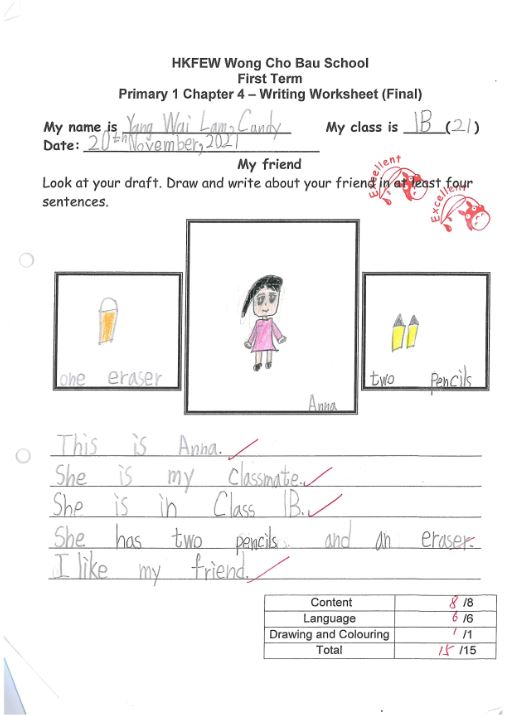 HKFEW Wong Cho Bau School
First Term
Primary 1 Chapter 4 – Writing Worksheet (Final)
My name is Yang Wai Lam, Candy My class is 1B (21)
Date: 20th November, 2021
My friend
Look at your draft. Draw and write about your friend in at least four
sentences.
Excellent
Excellent
one eraser
Anna
two pencils
This is Anna.
She is my classmate.
She is in Class 1B.
She has two pencils and an eraser.
I like my friend.
Content 8 /8
Language 6 /6
Drawing and Colouring 1 /1
Total 15 /15